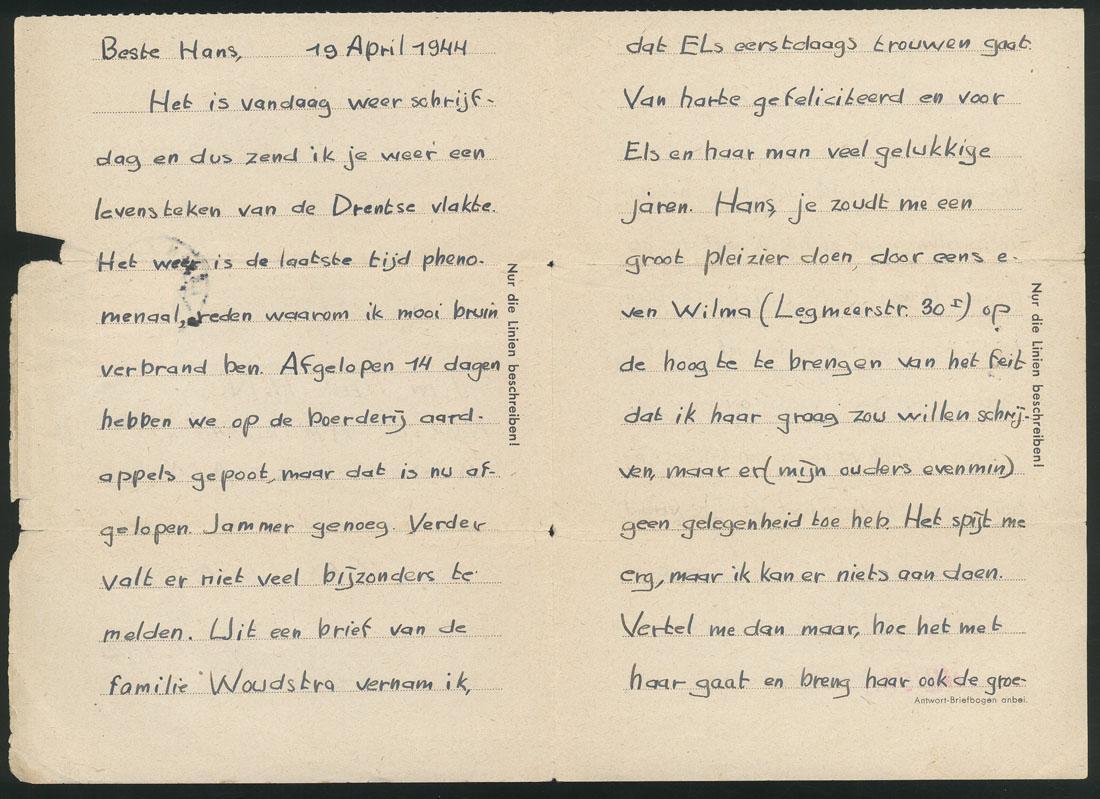 Beste Hans, 19 April 1944
Het is vandaag weer schrijf-
dag en dus zend ik je weer een
levensteken van de Drentse vlakte.
Het weer is de laatste tijd pheno-
menaal, reden waarom ik mooi bruin
verbrand ben. Afgelopen 14 dagen
hebben we op de boerderij aard-
appels gepoot, maar dat is nu af-
gelopen. Jammer genoeg. Verder
valt er niet veel bijzonders te
melden. Uit een brief van de
familie Woudstra vernam ik,
Nur die Linien beschreiben!
dat Els eerstdaags trouwen gaat.
Van harte gefeliciteerd en voor
Els en haar man veel gelukkige
jaren. Hans, je zoudt me een
groot pleizier doen, door eens e-
ven Wilma (Legmeerstr. 30 I) op
de hoogte te brengen van het feit
dat ik haar graag zou willen schrij-
ven, maar er (mijn ouders evenmin)
geen gelegenheid toe heb. Het spijt me
erg, maar ik kan er niets aan doen.
Vertel me dan maar, hoe het met
haar gaat en breng haar ook de groe-
Nur die Linien beschreiben!
Antwort-Briefbogen anbei.